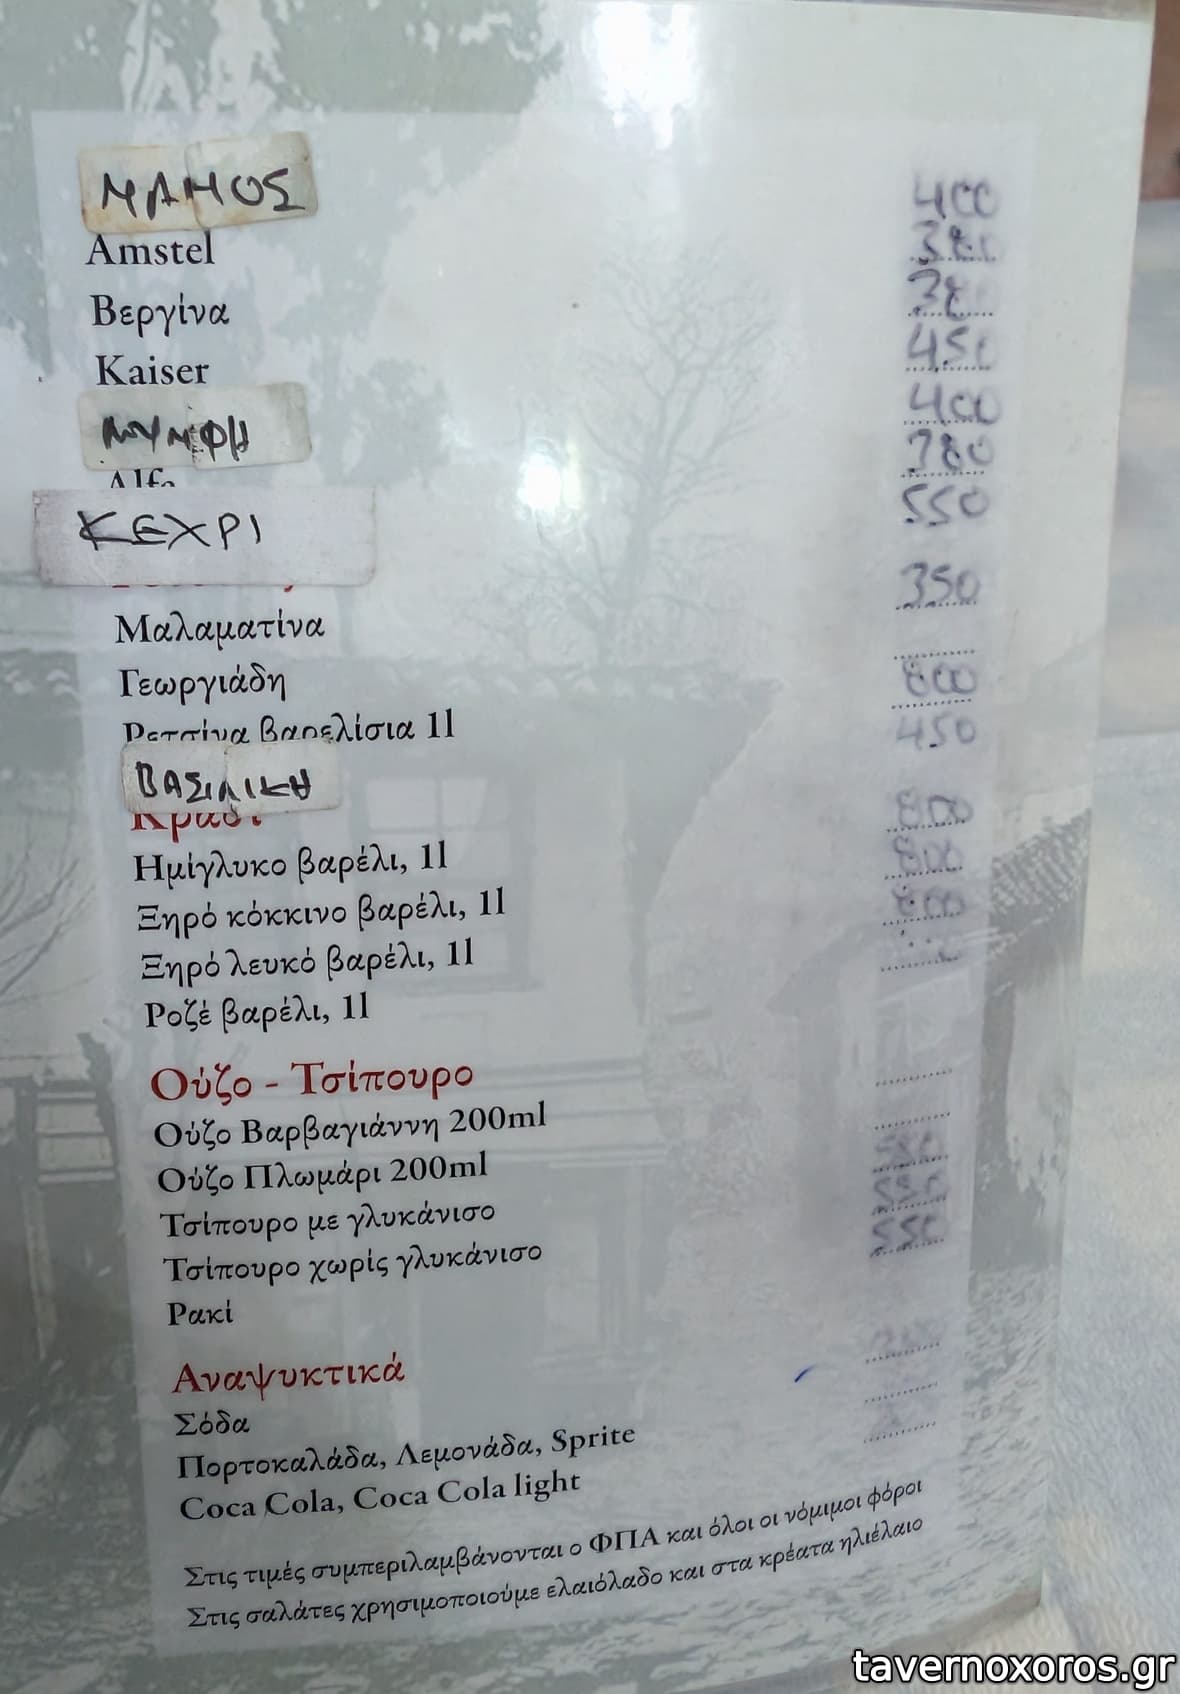 ΜΑΜΟΣ 400
Amstel 380
Βεργίνα 38
Kaiser 450
ΝΥΜΦΗ 400
Alfa 780
ΚΕΧΡΙ 550
Μαλαματίνα 350
Γεωργιάδη
Ρετσίνα βαρελίσια 1l 800
ΒΑΣΙΛΙΚΗ 450
Κρασί
Ημίγλυκο βαρέλι, 1l 800
Ξηρό κόκκινο βαρέλι, 1l 800
Ξηρό λευκό βαρέλι, 1l 800
Ροζέ βαρέλι, 1l
Ούζο - Τσίπουρο
Ούζο Βαρβαγιάννη 200ml
Ούζο Πλωμάρι 200ml
Τσίπουρο με γλυκάνισο
Τσίπουρο χωρίς γλυκάνισο 550
Ρακί 550
Αναψυκτικά
Σόδα
Πορτοκαλάδα, Λεμονάδα, Sprite
Coca Cola, Coca Cola light
Στις τιμές συμπεριλαμβάνονται ο ΦΠΑ και όλοι οι νόμιμοι φόροι
Στις σαλάτες χρησιμοποιούμε ελαιόλαδο και στα κρέατα ηλιέλαιο
tavernoxoros.gr